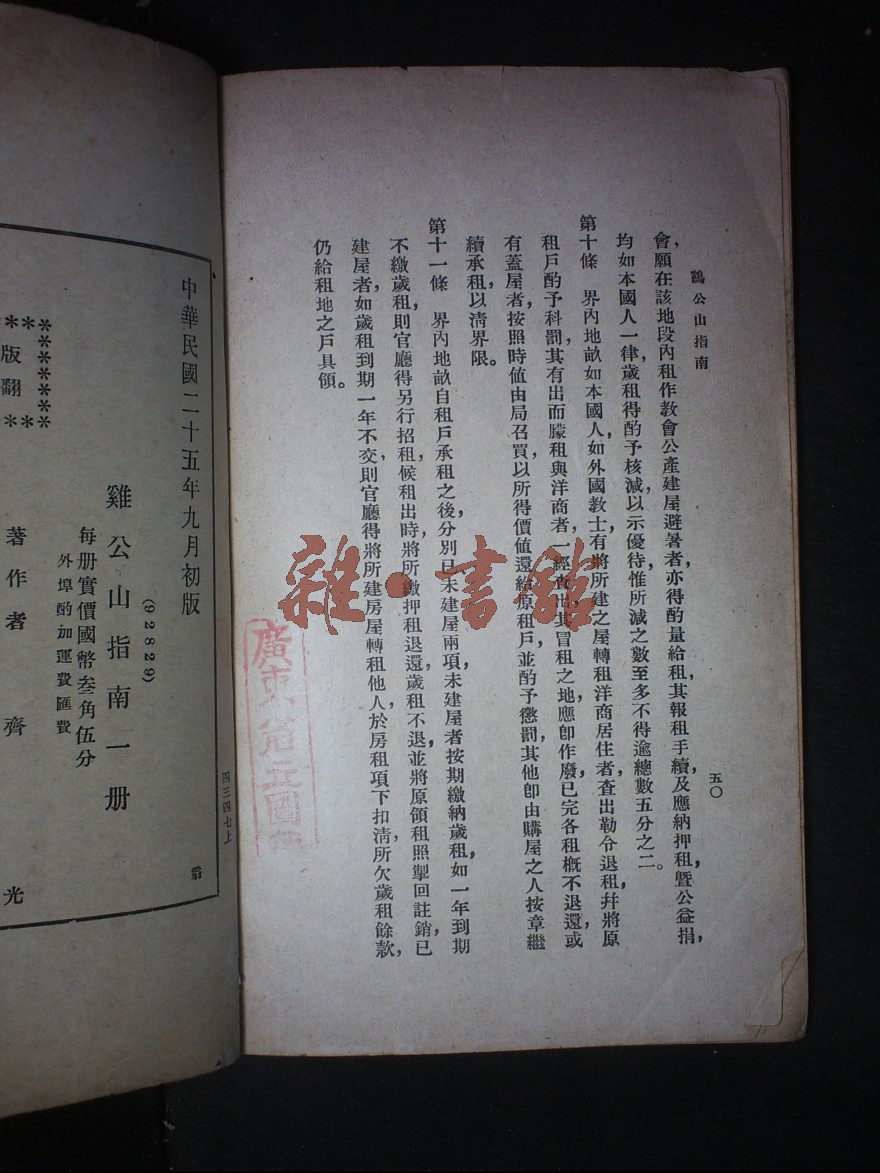 鷄公山指南
五〇
會，願在該地段內租作教會公產建屋避暑者，亦得酌量給租，其報租手續，及應納押租，曁公益捐，
均如本國人一律，歲租得酌予核減，以示優待，惟所減之數，至多不得逾總數五分之二。
第十條　界內地畝，如本國人，如外國教士，有將所建之屋，轉租洋商居住者，查出勒令退租，幷將原
租戶酌予科罰，其有出而朦租與洋商者，一經查出，其冒租之地，應卽作廢，已完各租，槪不退還，或
有蓋屋者，按照時值由局召買，以所得價值還給原租戶，並酌予懲罰，其他卽由購屋之人，按章繼
續承租，以清界限。
第十一條　界內地畝，自租戶承租之後，分別已未建屋兩項，未建屋者，按期繳納歲租，如一年到期
不繳歲租，則官廳得另行招租，候租出時，將所繳押租退還，歲租不退，並將原領租照掣回註銷，已
建屋者，如歲租到期一年不交，則官廳得將所建房屋轉租他人，於房租項下，扣清所欠歲租，餘款，
仍給租地之戶具領。
雜·書館
廣東省立國
中華民國二十五年九月初版
(92829)
雞公山指南一册
每册實價國幣叁角伍分
外埠酌加運費匯費
著作者　齊　光
版翻
四三四七上
翁